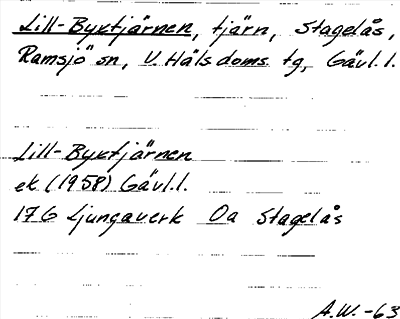 Lill-Byxtjärnen, tjärn, Stagelås,
Ramsjö sn, V. Häls doms. tg, Gävl. l.
Lill-Byxtjärnen
ek. (1958) Gävl. l.
17 G Ljungaverk Oa Stagelås
A.W. -63